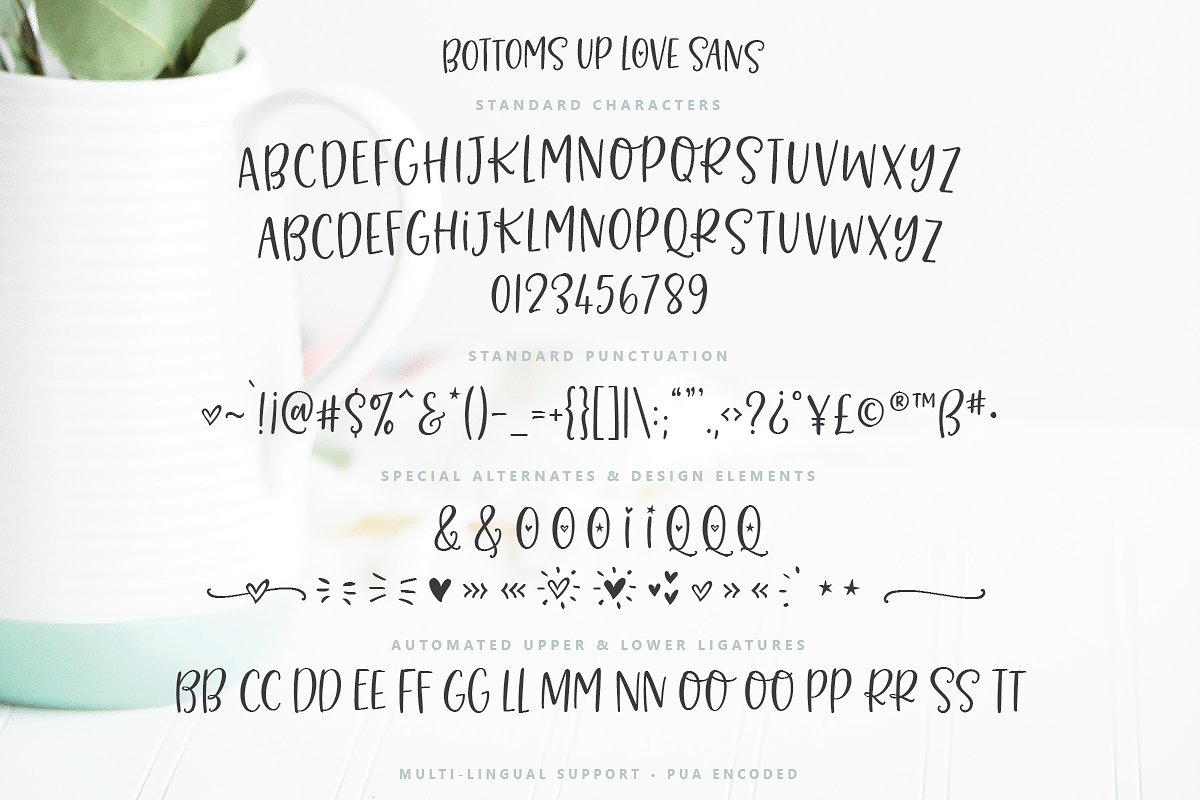 BOTTOMS UP LOVE SANS
STANDARD CHARACTERS
ABCDEFGHIJKLMNOPQRSTUVWXYZ
ABCDEFGHiJKLMNOPQRSTUVWXYZ
0123456789
STANDARD PUNCTUATION
♡~`!¡@#$%^&*()-_=+{}[]|\:;“”’.,<>?¿°¥£©®™ß#•
SPECIAL ALTERNATES & DESIGN ELEMENTS
& & O O O i i Q Q Q
♥ »› ‹« ♡ ♥ ♥ ♡ » « ★ ★
AUTOMATED UPPER & LOWER LIGATURES
BB CC DD EE FF GG LL MM NN OO OO PP RR SS TT
MULTI-LINGUAL SUPPORT • PUA ENCODED